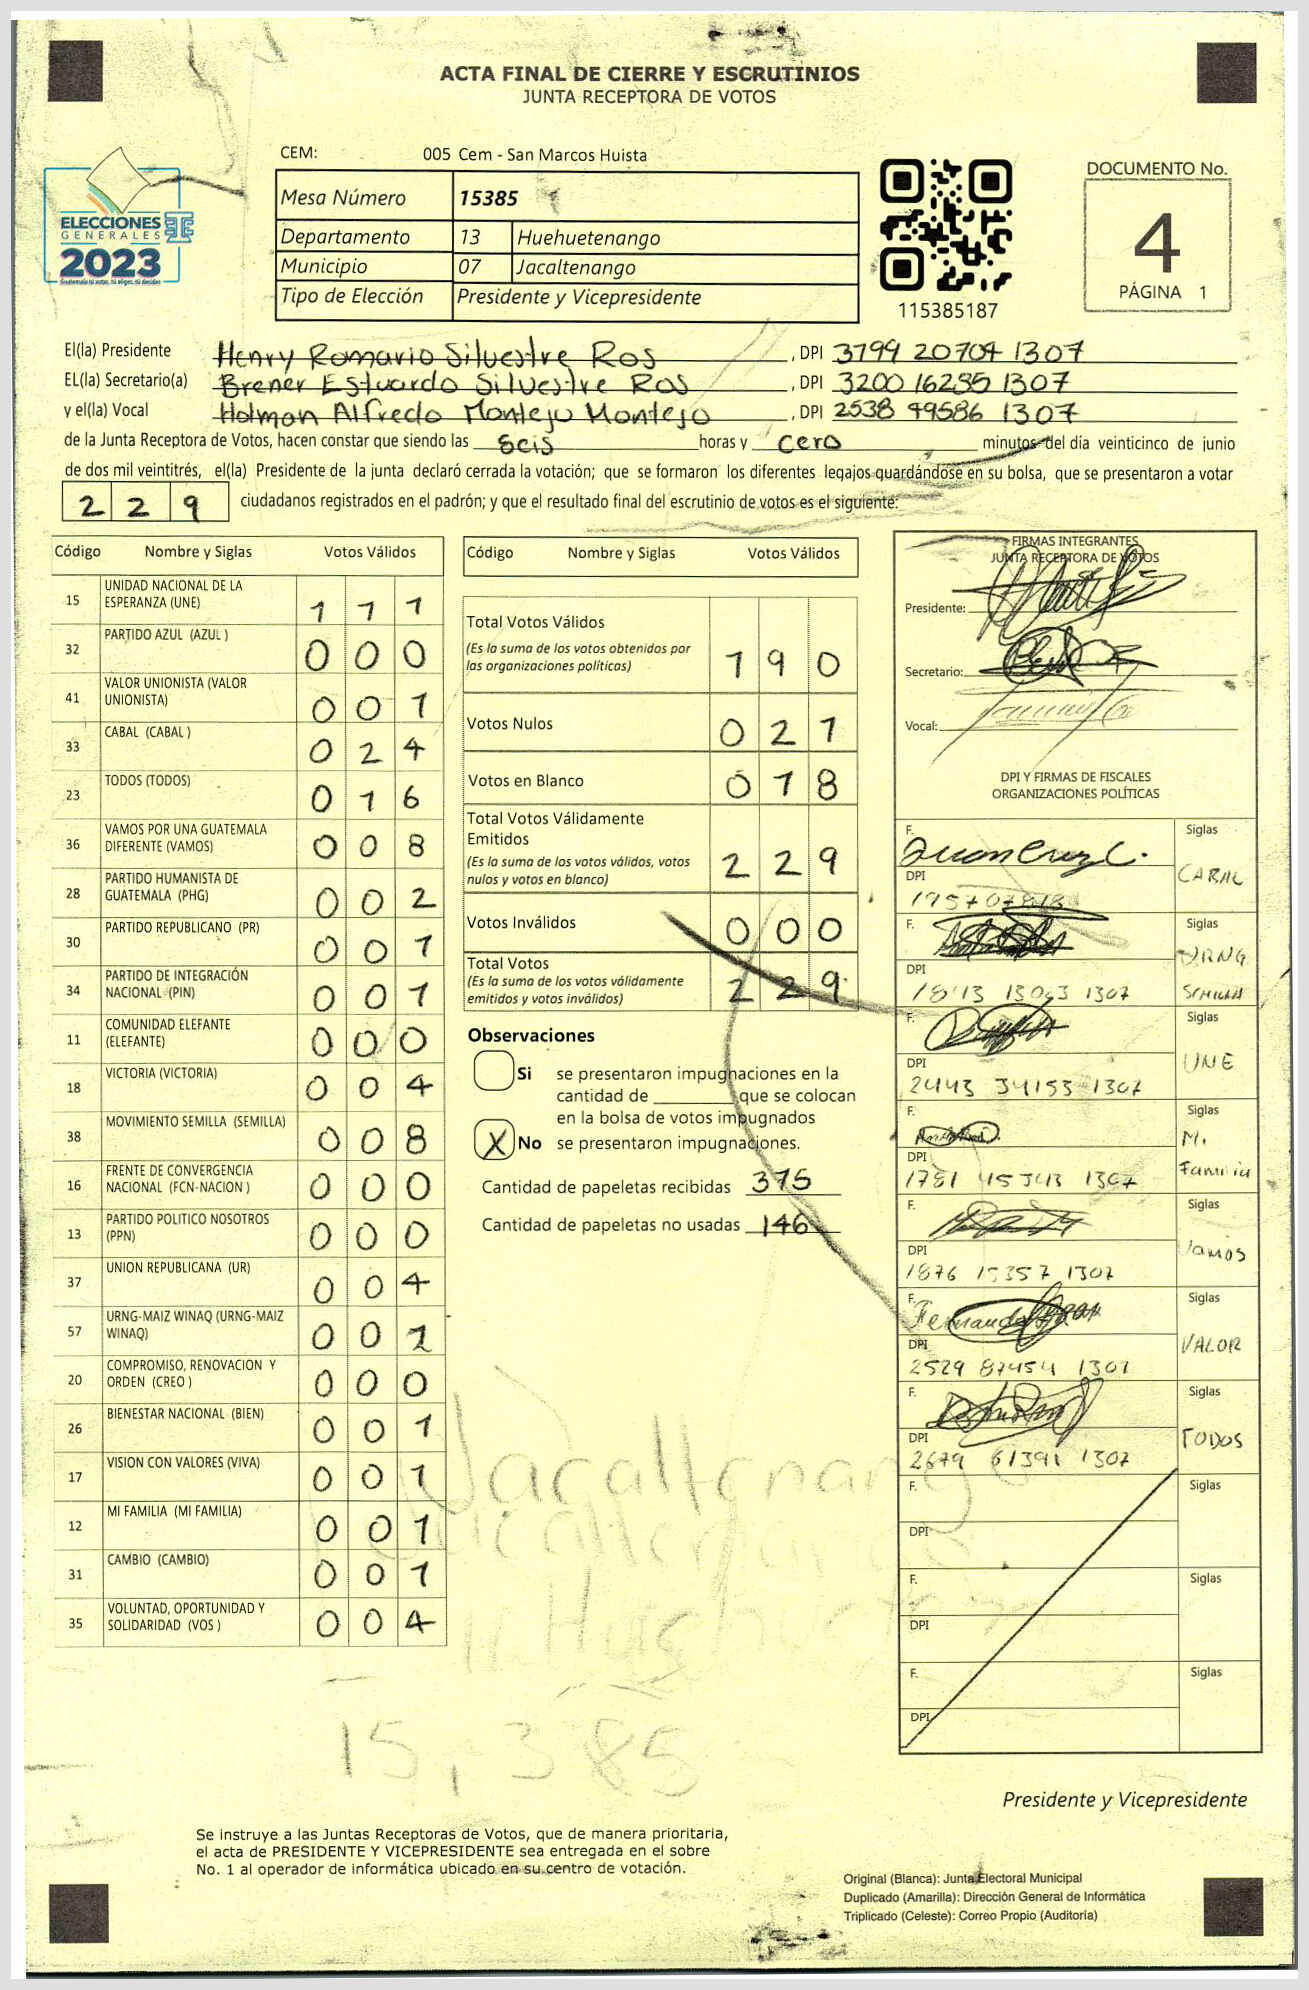 ACTA FINAL DE CIERRE Y ESCRUTINIOS
JUNTA RECEPTORA DE VOTOS
CEM: 005 Cem - San Marcos Huista
Mesa Número 15385
Departamento 13 Huehuetenango
Municipio 07 Jacaltenango
Tipo de Elección Presidente y Vicepresidente
ELECCIONES
GENERALES
2023
115385187
DOCUMENTO No.
4
PÁGINA 1
El(la) Presidente Henry Romario Silvestre Ros, DPI 3799 20704 1307
EL(la) Secretario(a) Brener Estuardo Silvestre Ros, DPI 3200 16285 1307
y el(la) Vocal Holman Alfredo Montejo Montejo, DPI 2538 49586 1307
de la Junta Receptora de Votos, hacen constar que siendo las seis horas y cero minutos del día veinticinco de junio
de dos mil veintitrés, el(la) Presidente de la junta declaró cerrada la votación; que se formaron los diferentes legajos guardándose en su bolsa, que se presentaron a votar
229 ciudadanos registrados en el padrón; y que el resultado final del escrutinio de votos es el siguiente:
Código Nombre y Siglas Votos Válidos
15 UNIDAD NACIONAL DE LA ESPERANZA (UNE) 111
32 PARTIDO AZUL (AZUL ) 000
41 VALOR UNIONISTA (VALOR UNIONISTA) 001
33 CABAL (CABAL ) 024
23 TODOS (TODOS) 016
36 VAMOS POR UNA GUATEMALA DIFERENTE (VAMOS) 008
28 PARTIDO HUMANISTA DE GUATEMALA (PHG) 002
30 PARTIDO REPUBLICANO (PR) 001
34 PARTIDO DE INTEGRACIÓN NACIONAL (PIN) 001
11 COMUNIDAD ELEFANTE (ELEFANTE) 000
18 VICTORIA (VICTORIA) 004
38 MOVIMIENTO SEMILLA (SEMILLA) 008
16 FRENTE DE CONVERGENCIA NACIONAL (FCN-NACION ) 000
13 PARTIDO POLITICO NOSOTROS (PPN) 000
37 UNION REPUBLICANA (UR) 004
57 URNG-MAIZ WINAQ (URNG-MAIZ WINAQ) 002
20 COMPROMISO, RENOVACION Y ORDEN (CREO ) 000
26 BIENESTAR NACIONAL (BIEN) 001
17 VISION CON VALORES (VIVA) 001
12 MI FAMILIA (MI FAMILIA) 001
31 CAMBIO (CAMBIO) 001
35 VOLUNTAD, OPORTUNIDAD Y SOLIDARIDAD (VOS ) 004
Código Nombre y Siglas Votos Válidos
Total Votos Válidos 190
(Es la suma de los votos obtenidos por
las organizaciones políticas)
Votos Nulos 021
Votos en Blanco 018
Total Votos Válidamente
Emitidos 229
(Es la suma de los votos válidos, votos
nulos y votos en blanco)
Votos Inválidos 000
Total Votos 229
(Es la suma de los votos válidamente
emitidos y votos inválidos)
Observaciones
Si se presentaron impugnaciones en la
cantidad de ________ que se colocan
en la bolsa de votos impugnados
X No se presentaron impugnaciones.
Cantidad de papeletas recibidas 375
Cantidad de papeletas no usadas 146
FIRMAS INTEGRANTES
JUNTA RECEPTORA DE VOTOS
Presidente:
Secretario:
Vocal:
DPI Y FIRMAS DE FISCALES
ORGANIZACIONES POLÍTICAS
F. Juan Cruz C. Siglas
DPI CABAL
F. Siglas
DPI URNG
1307 SEMILLA
F. Siglas
DPI UNE
2443 34153 1307
F. Siglas
DPI M.
1307 Familia
F. Siglas
DPI Vamos
1876 15357 1307
F. Fernando Siglas
DPI VALOR
2529 87454 1307
F. Siglas
DPI TODOS
2679 61391 1307
F. Siglas
DPI
F. Siglas
DPI
F. Siglas
DPI
Jacaltenango
15,385
Presidente y Vicepresidente
Se instruye a las Juntas Receptoras de Votos, que de manera prioritaria,
el acta de PRESIDENTE Y VICEPRESIDENTE sea entregada en el sobre
No. 1 al operador de informática ubicado en su centro de votación.
Original (Blanca): Junta Electoral Municipal
Duplicado (Amarilla): Dirección General de Informática
Triplicado (Celeste): Correo Propio (Auditoría)